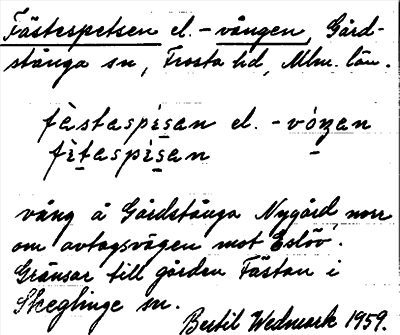 Fästespetsen el. -vången, Gård-
stånga sn, Frosta hd, Mlm. län.
fästaspisan el. -vóŋan
fitaspisan
vång å Gårdstånga Nygård norr
om avtagsvägen mot Eslöv.
Gränsar till gården Fästan i
Skeglinge sn.
Bertil Wedmark 1959.